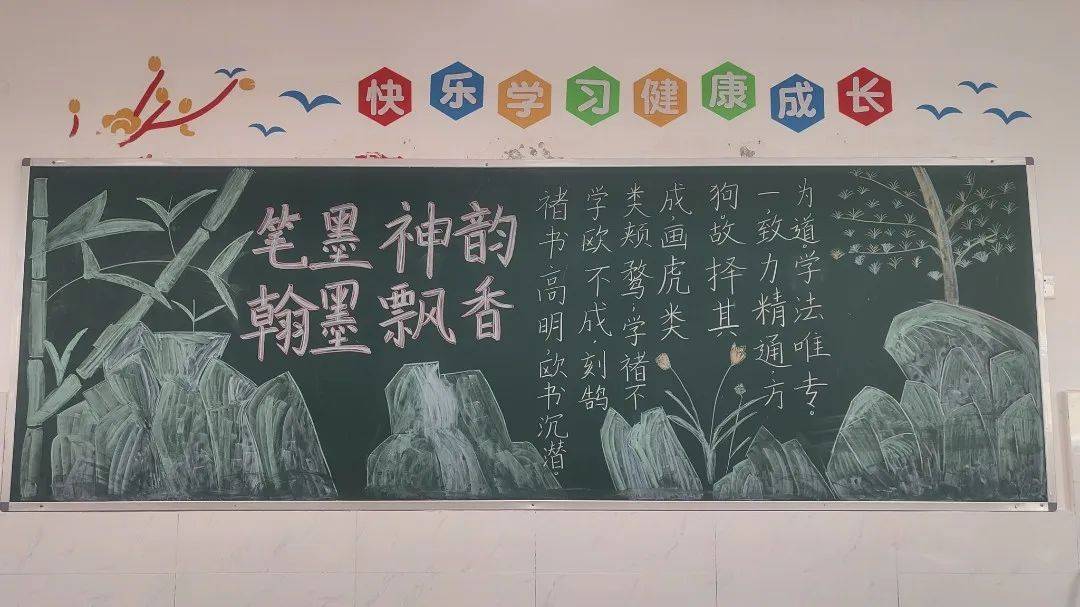 快乐学习健康成长
笔墨神韵
翰墨飘香
褚书高明欧书沉潜。
学欧不成.刻鹄
类鹜.学褚不
成.画虎类
狗.故择其
一致力精通.方
为道.学法唯专。